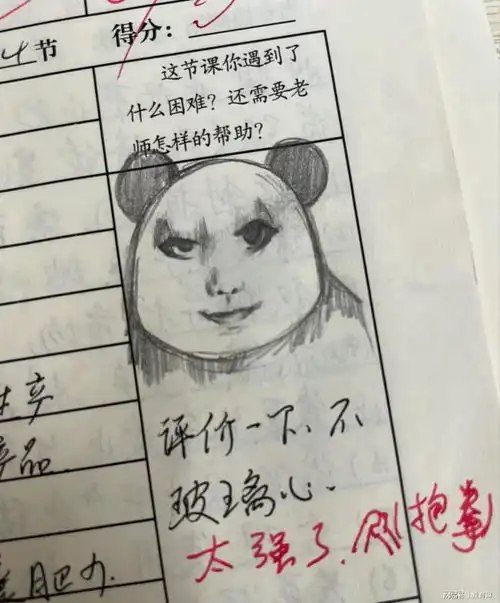 4节
得分：
这节课你遇到了
什么困难？还需要老
师怎样的帮助？
产品
评价一下、不
玻璃心.
肥力.
太强了.(抱拳)